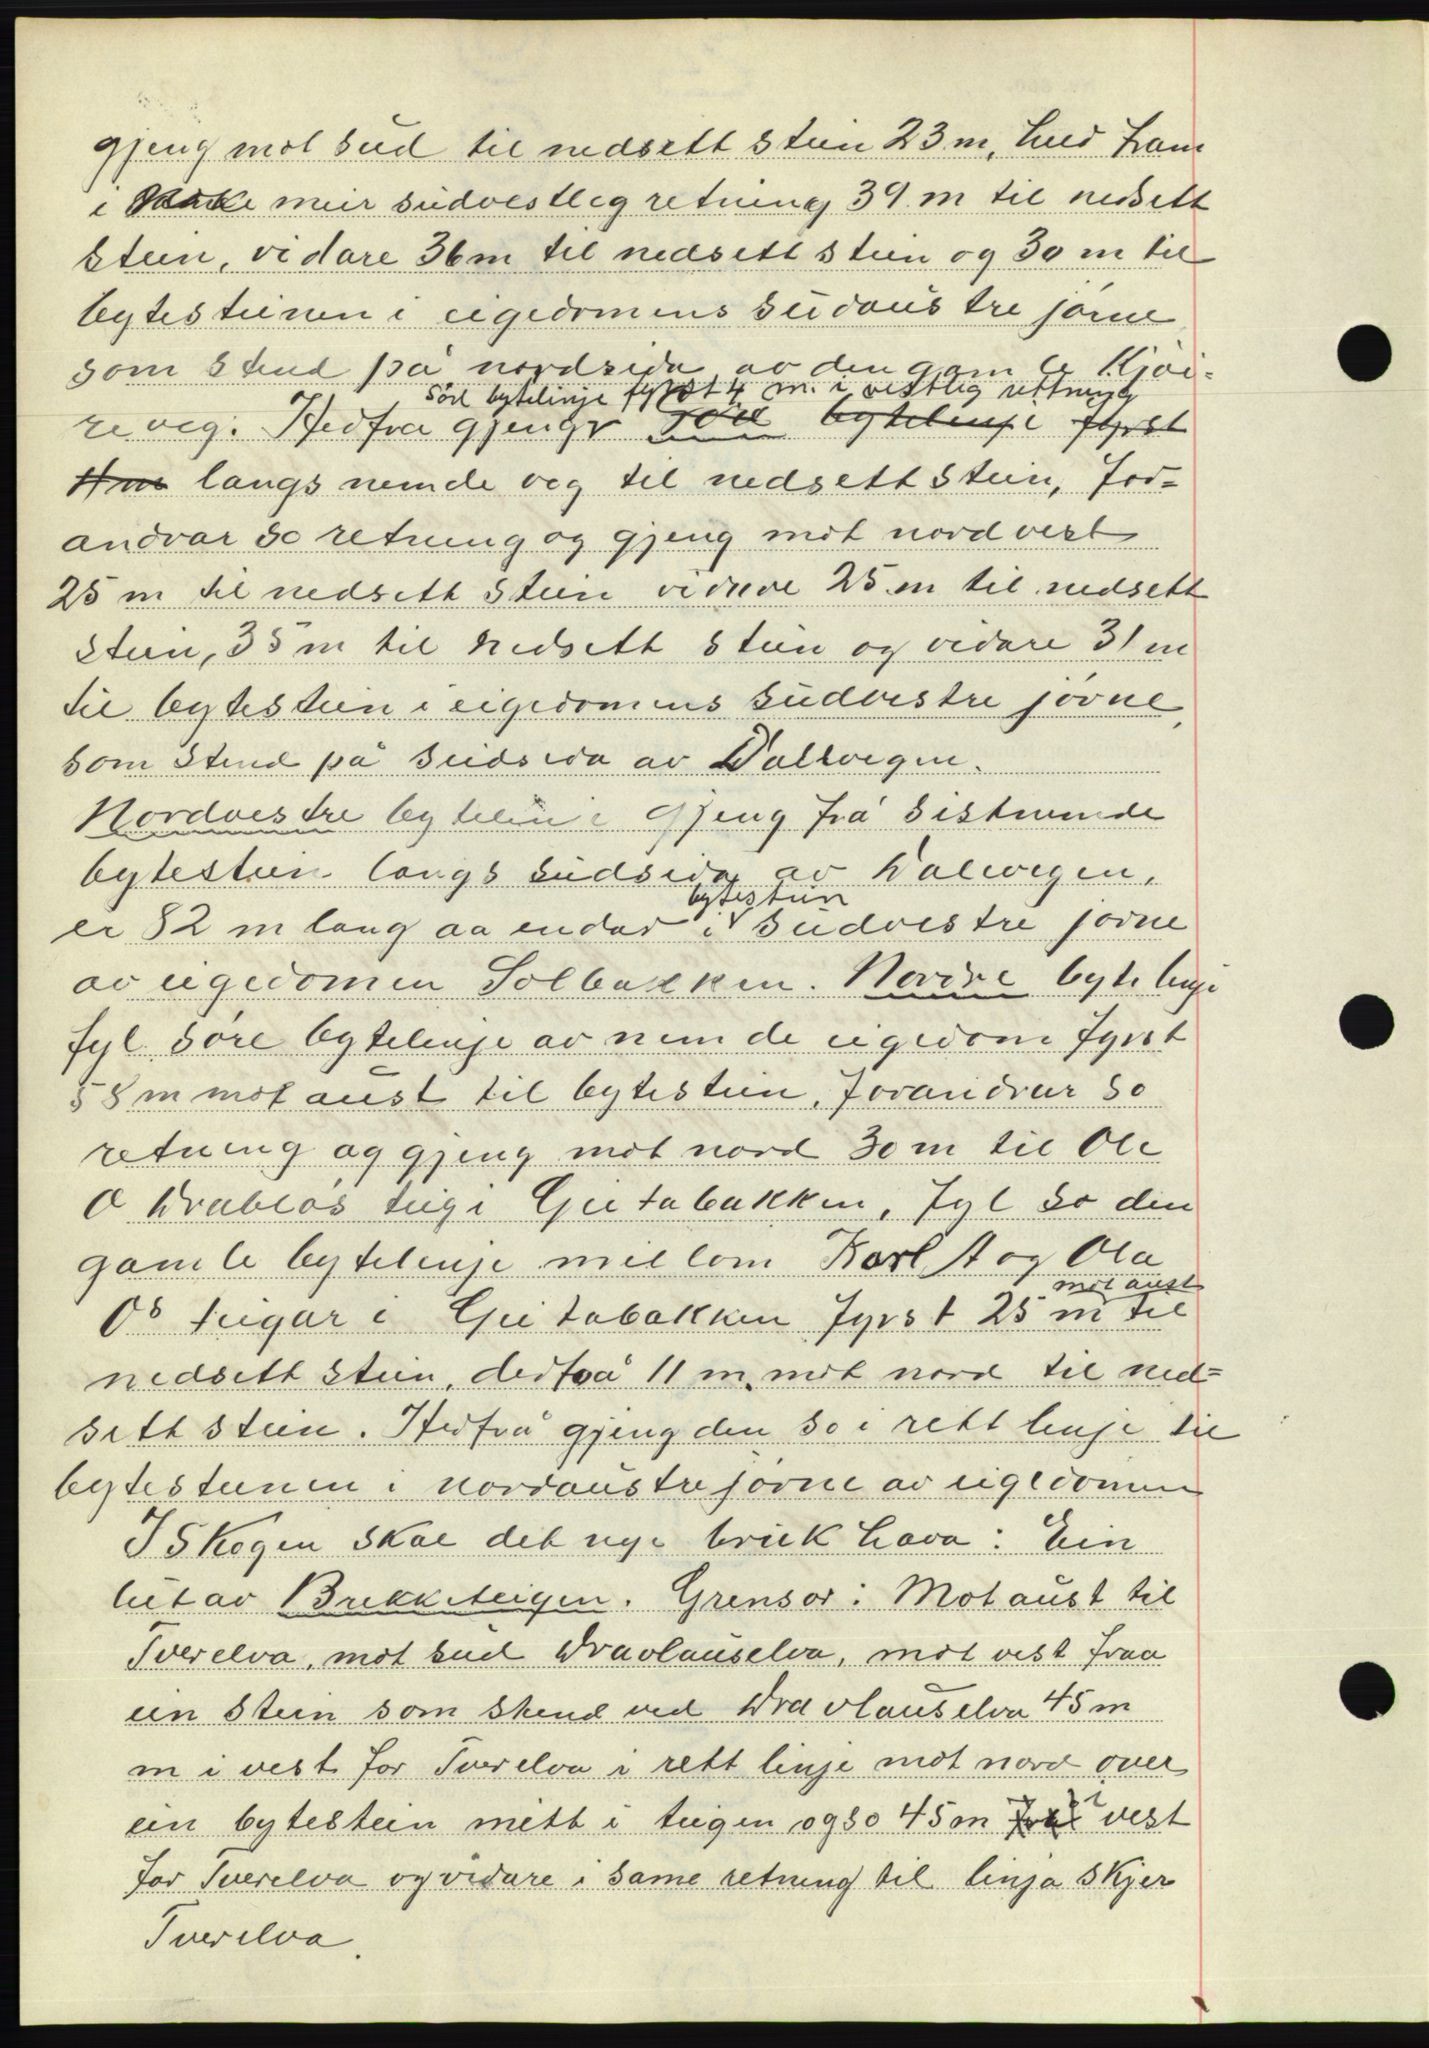 gjeng mot sud til nedsett stein 23 m, held fram
i meir sudvestleg retning 39 m til nedsett
stein, vidare 36 m til nedsett stein og 30 m til
bytesteinen i eigedomens sudaustre jørne
som stend på nordsida av den gamle Kjøi-
søre bytelinje fyrst 4 m. i vestlig rettning
reveg. Hedfra gjengr søre bytelinje fyrst
4 m langs nemde veg til nedsett stein, for-
andrar so retning og gjeng mot nordvest
25 m til nedsett stein vidare 25 m til nedsett
stein, 35 m til nedsett stein og vidare 31 m
til bytestein i eigedomens sudvestre jørne,
som stend på sudsida av Dalevegen.
Nordvestre bytelinje gjeng frå sistnemde
bytestein langs sudsida av Dalevegen,
bytestein
er 82 m lang aa endar i sudvestre jørne
av eigedomen Solbakken. Nordre bytelinje
fyl søre bytelinje av nemde eigedom fyrst
58 m mot aust til bytestein, forandrar so
retning og gjeng mot nord 30 m til Ole
O Drabløs teig i Geitabakken, fyl so den
gamle bytelinje millom Karl A og Ola
mot aust
Os teigar i Geitabakken fyrst 25 m til
nedsett stein, dedfrå 11 m. mot nord til ned=
sett stein. Hedfrå gjeng den so i rett linje til
bytesteinen i nordaustre jørne av eigedomen
I Skogen skal det nye bruk hava: Ein
lut av Brekketeigen. Grensor: Mot aust til
Tverelva, mot sud Dravlauselva, mot vest fraa
ein stein som stend ved Dravlauselva 45 m
m i vest for Tverelva i rett linje mot nord over
ein bytestein mitt i teigen ogso 45 m i vest
for Tverelva og vidare i same retning til linja skjer
Tverelva.